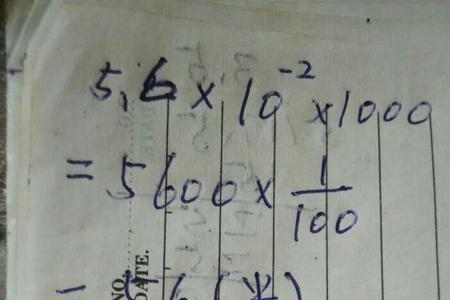 5,6 × 10⁻² × 1000
= 5600 × 1/100
NO.
DATE.